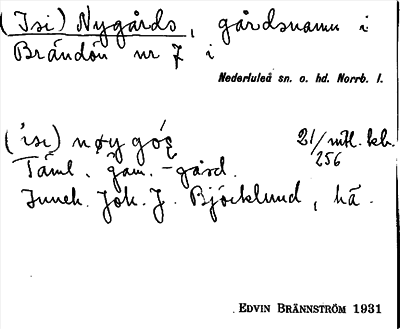 (Isi) Nygårds, gårdsnamn i
Brändön nr 7 i
Nederluleå sn. o. hd. Norrb. l.
('isi) nøy góę
21/256 mtl. kb.
Täml. gam. -gård.
Inneh. Joh. J. Björklund, hä.
EDVIN BRÄNNSTRÖM 1931